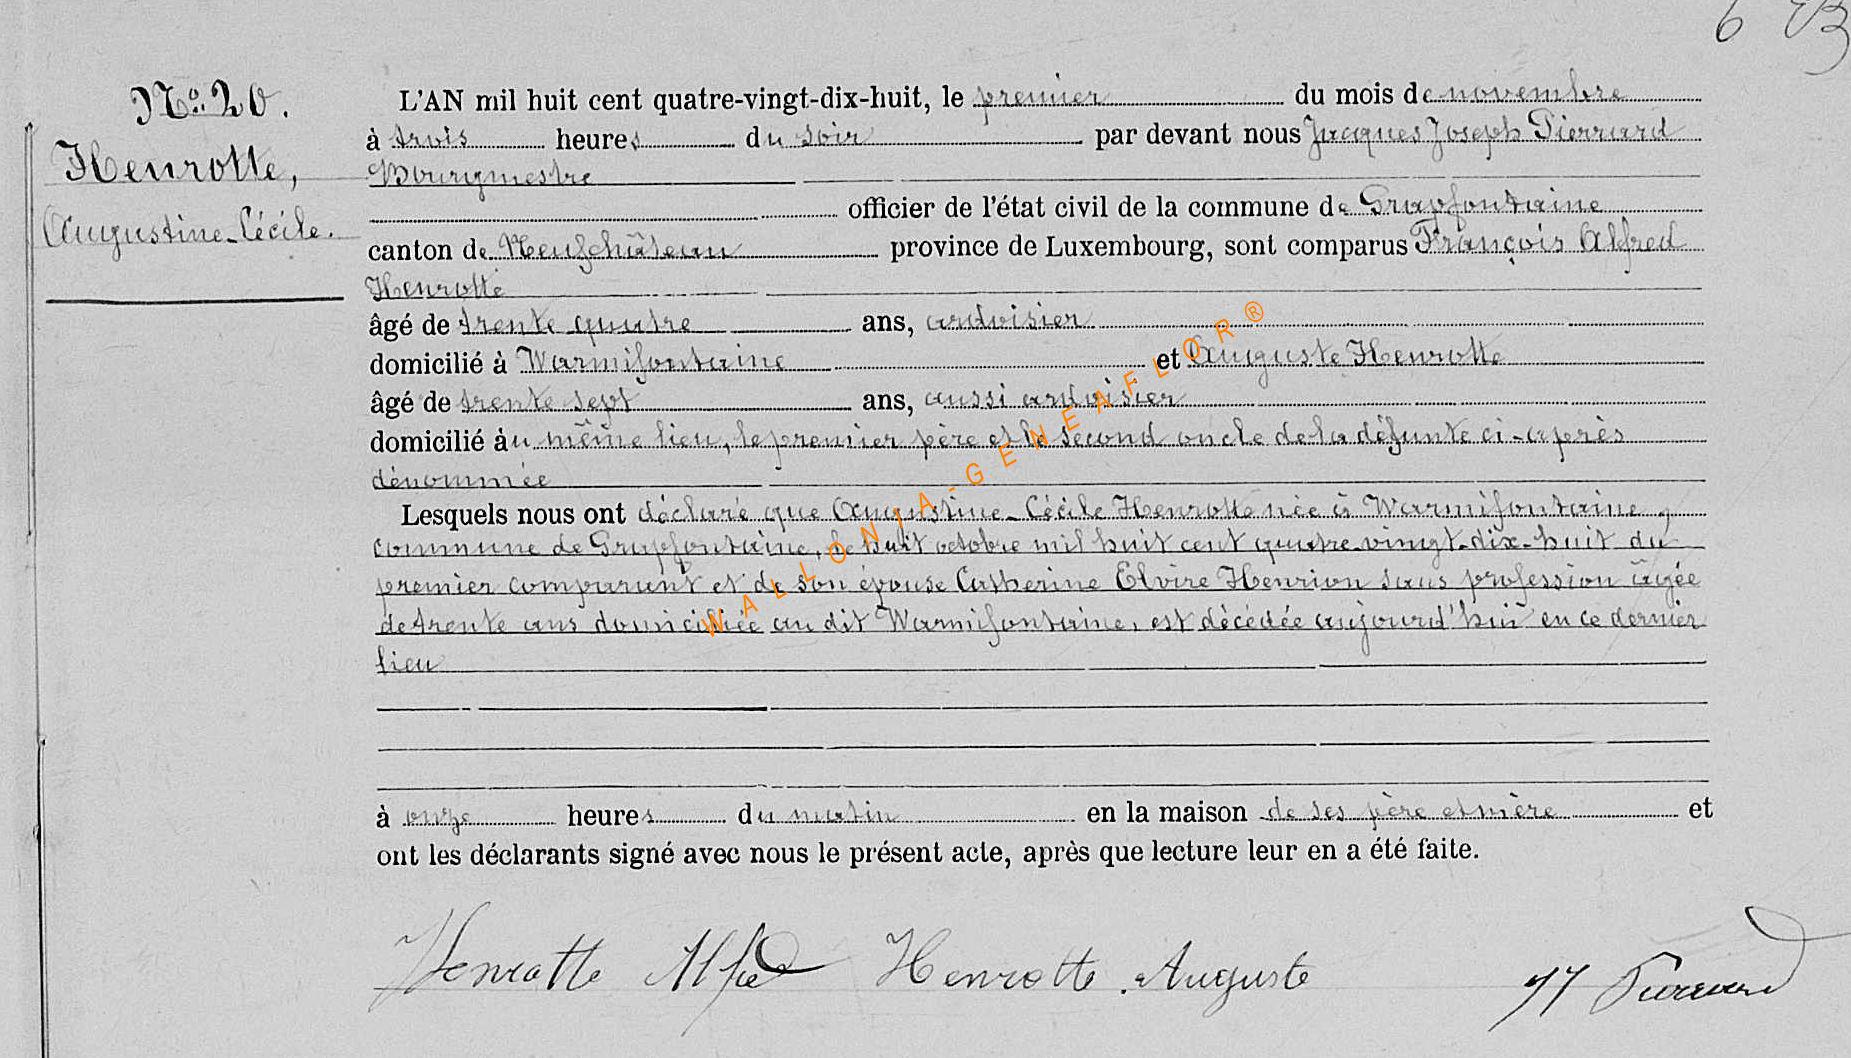 6
No. 20.
Henrotte,
Augustine-Cécile.
L'AN mil huit cent quatre-vingt-dix-huit, le premier du mois de novembre
à trois heures du soir par devant nous Jacques Joseph Pierrard
Bourgmestre
officier de l'état civil de la commune de Grapfontaine
canton de Neufchâteau province de Luxembourg, sont comparus François Alfred
Henrotte
âgé de trente quatre ans, ardoisier
domicilié à Warmifontaine et Auguste Henrotte
âgé de trente sept ans, aussi ardoisier
domicilié au même lieu, le premier père et le second oncle de la défunte ci-après
dénommée
Lesquels nous ont déclaré que Augustine-Cécile Henrotte née à Warmifontaine,
commune de Grapfontaine, le huit octobre mil huit cent quatre-vingt-dix-huit du
premier comparant et de son épouse Catherine Elvire Henrion sans profession âgée
de trente ans domiciliée au dit Warmifontaine, est décédée aujourd'hui en ce dernier
lieu
à onze heures du matin en la maison de ses père et mère et
ont les déclarants signé avec nous le présent acte, après que lecture leur en a été faite.
Henrotte Alfred Henrotte Auguste JJ Pierrard
WALLONIA-GENEAFLOR®